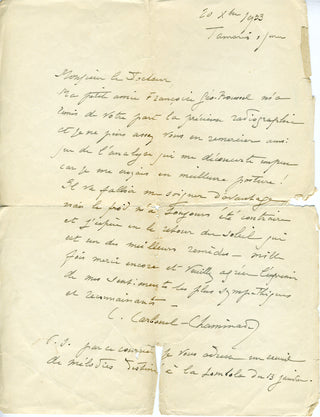 20 Xbre 1923
Tamaris s/mer
Monsieur le Docteur,
Ma petite amie Françoise Géo Roussel m'a
remis de votre part la précieuse radiographie
et je ne puis assez vous en remercier ainsi
que de l'analyse qui me déconcerte un peu
car je me croyais en meilleure posture !
Il va falloir me soigner davantage
mais le froid m'a toujours été contraire
et j'espère en le retour du soleil qui
est un des meilleurs remèdes — mille
fois merci encore et veuillez agréer l'expression
de mes sentiments les plus sympathiques
et reconnaissants —
C. Carbonel-Chaminade
P.S. par ce courrier je vous adresse un recueil
de mélodies destiné à la tombola du 13 janvier.